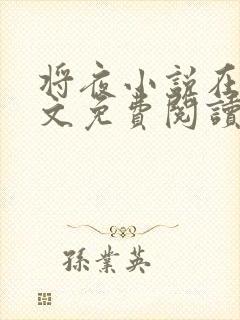 将夜小说在
文免費閱讀
孫業英